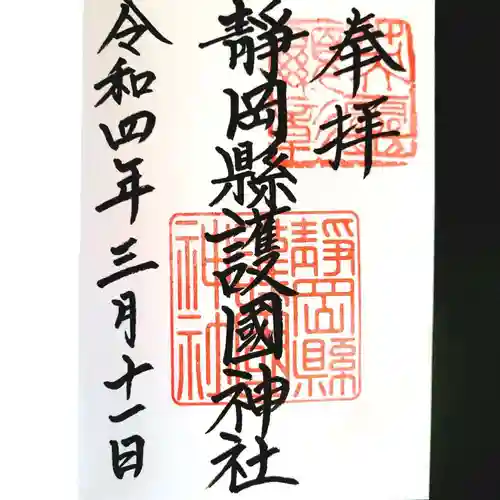 奉拝
靜岡縣護國神社
令和四年三月十一日
靜岡縣
神社